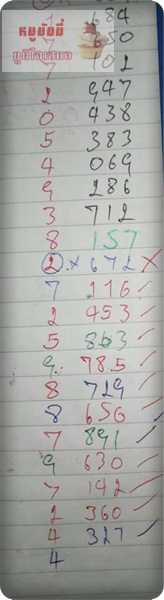 1 684
កម្មយ៉ុងយី
7 650
ឬពីរ៉ែសមេខ
7 102
2 947
0 438
5 383
4 069
9 286
3 712
8 157
2 × 672 ×
7 116 ✓
2 453 ✓
5 863 ✓
9 785 ✓
8 729 ✓
8 656 ✓
7 891 ✓
9 630 ✓
7 192 ✓
1 360 ✓
4 327 ✓
4